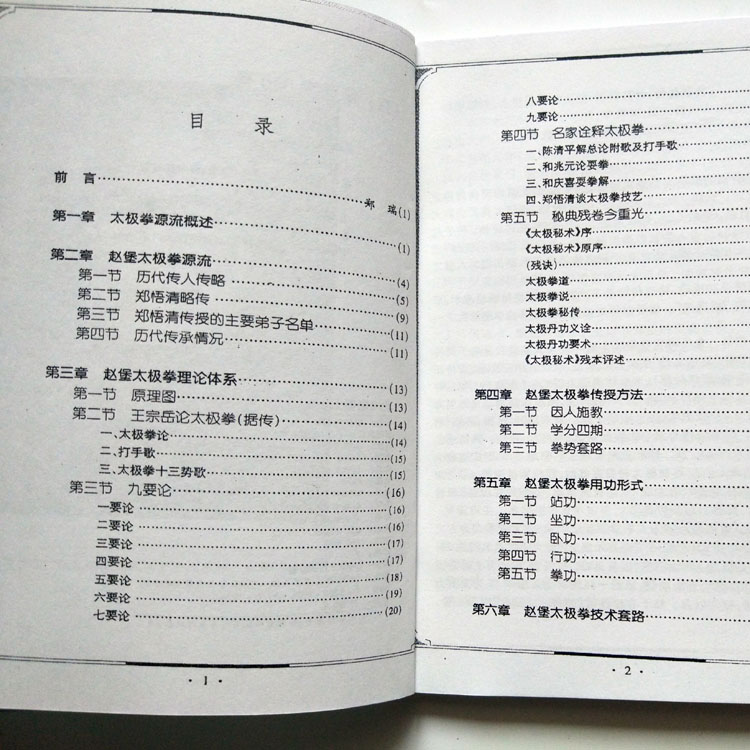 目 录
前 言 郑 瑞(1)
第一章 太极拳源流概述 (1)
第二章 赵堡太极拳源流 (4)
第一节 历代传人传略 (5)
第二节 郑悟清略传 (9)
第三节 郑悟清传授的主要弟子名单 (11)
第四节 历代传承情况 (11)
第三章 赵堡太极拳理论体系 (13)
第一节 原理图 (13)
第二节 王宗岳论太极拳(据传) (14)
一、太极拳论 (14)
二、打手歌 (15)
三、太极拳十三势歌 (15)
第三节 九要论 (16)
一要论 (16)
二要论 (16)
三要论 (17)
四要论 (17)
五要论 (18)
六要论 (19)
七要论 (20)
·1·
八要论
九要论
第四节 名家诠释太极拳
一、陈清平解总论附歌及打手歌
二、和兆元论耍拳
三、和庆喜耍拳解
四、郑悟清谈太极拳技艺
第五节 秘典残卷今重光
《太极秘术》序
《太极秘术》原序
(残诀)
太极拳道
太极拳说
太极拳秘传
太极丹功义诠
太极丹功要术
《太极秘术》残本评述
第四章 赵堡太极拳传授方法
第一节 因人施教
第二节 学分四期
第三节 拳势套路
第五章 赵堡太极拳用功形式
第一节 站功
第二节 坐功
第三节 卧功
第四节 行功
第五节 拳功
第六章 赵堡太极拳技术套路
·2·